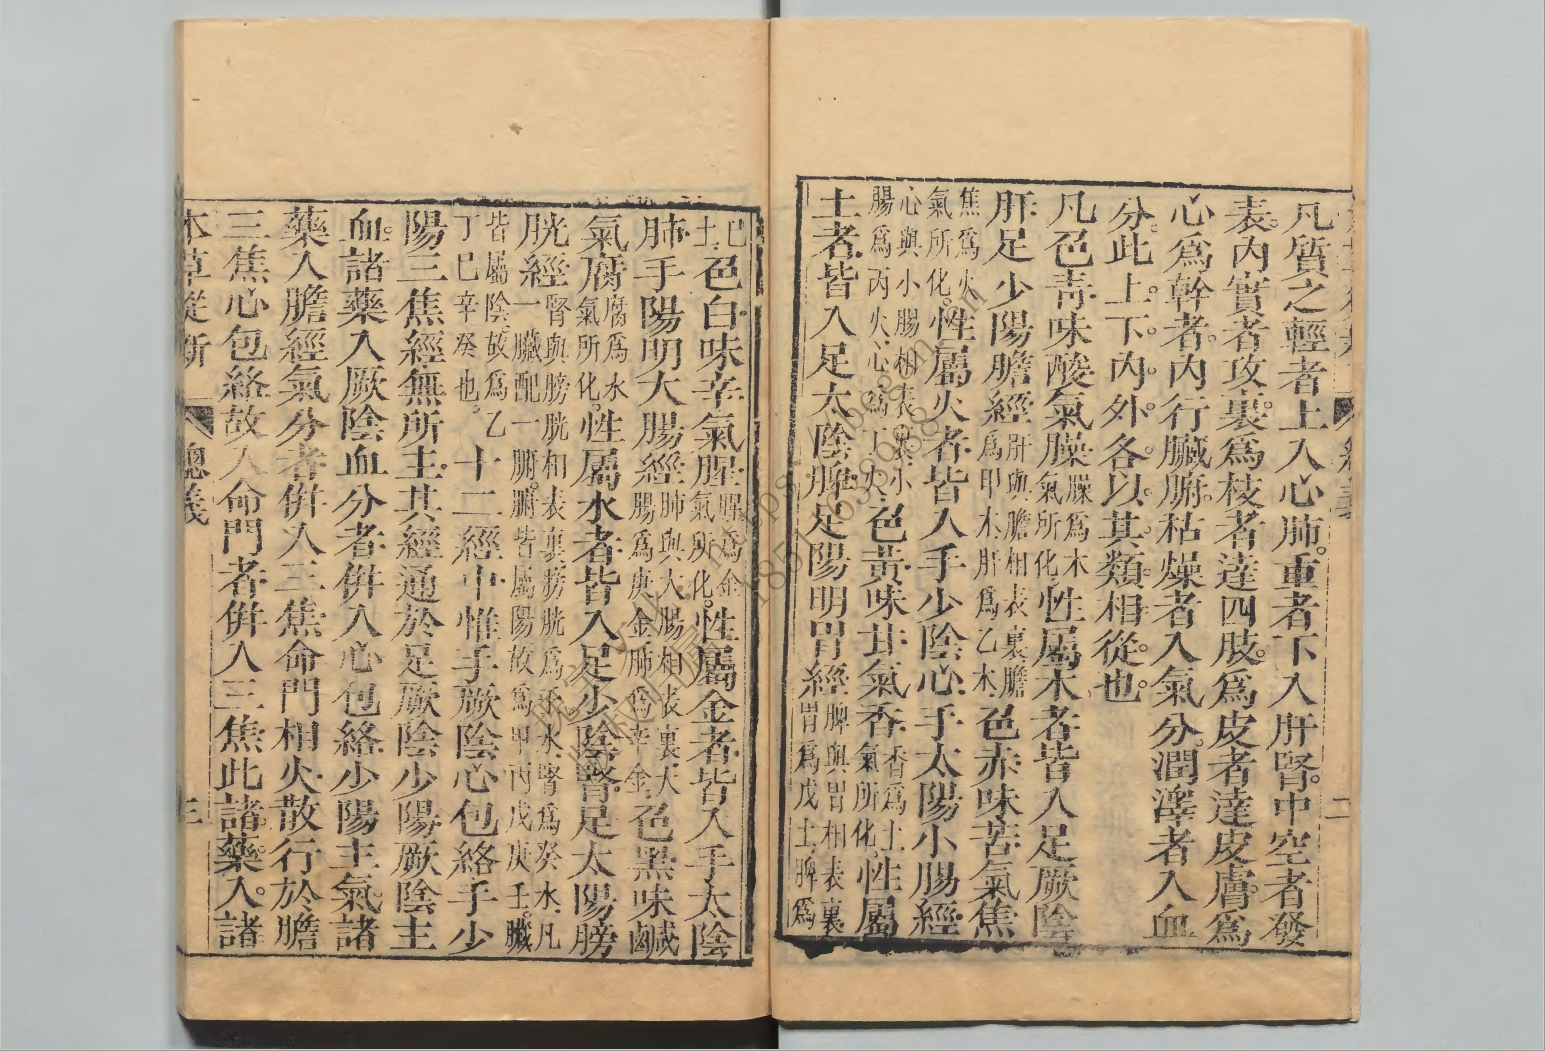 凡質之輕者上入心肺。重者下入肝腎。中空者發
表。內實者攻裏。爲枝者達四肢。爲皮者達皮膚。爲
心爲幹者。內行臟腑。枯燥者入氣分。潤澤者入血
分。此上。下。內。外。各以。其。類。相。從。也
凡色青味酸氣臊臊爲木氣所化性屬木者皆入足厥陰
肝足少陽膽經肝與膽相表裏膽爲甲木肝爲乙木色赤味苦氣焦
焦爲火氣所化。性屬火者皆入手少陰心手太陽小腸經
心與小腸相表裏小腸爲丙火心爲丁火色黃味甘氣香香爲土氣所化。性屬
土者皆入足太陰脾足陽明胃經脾與胃相表裏胃爲戊土脾爲
二
己土色白味辛氣腥腥爲金氣所化。性屬金者皆入手太陰
肺手陽明大腸經肺與大腸相表裏大腸爲庚金肺爲辛金色黑味鹹
氣腐腐爲水氣所化。性屬水者皆入足少陰腎足太陽膀
胱經腎與膀胱相表裏膀胱爲壬水腎爲癸水凡一臟配一腑。腑皆屬陽故爲甲丙戊庚壬。臟
皆屬陰。故爲乙丁己辛癸也。十二經中惟手厥陰心包絡手少
陽三焦經無所主其經通於足厥陰少陽厥陰主
血。諸藥入厥陰血分者併入心包絡少陽主氣。諸
藥入膽經氣分者併入三焦命門相火散行於膽
三焦心包絡故入命門者併入三焦此諸藥入。諸
本草從新
總義
三